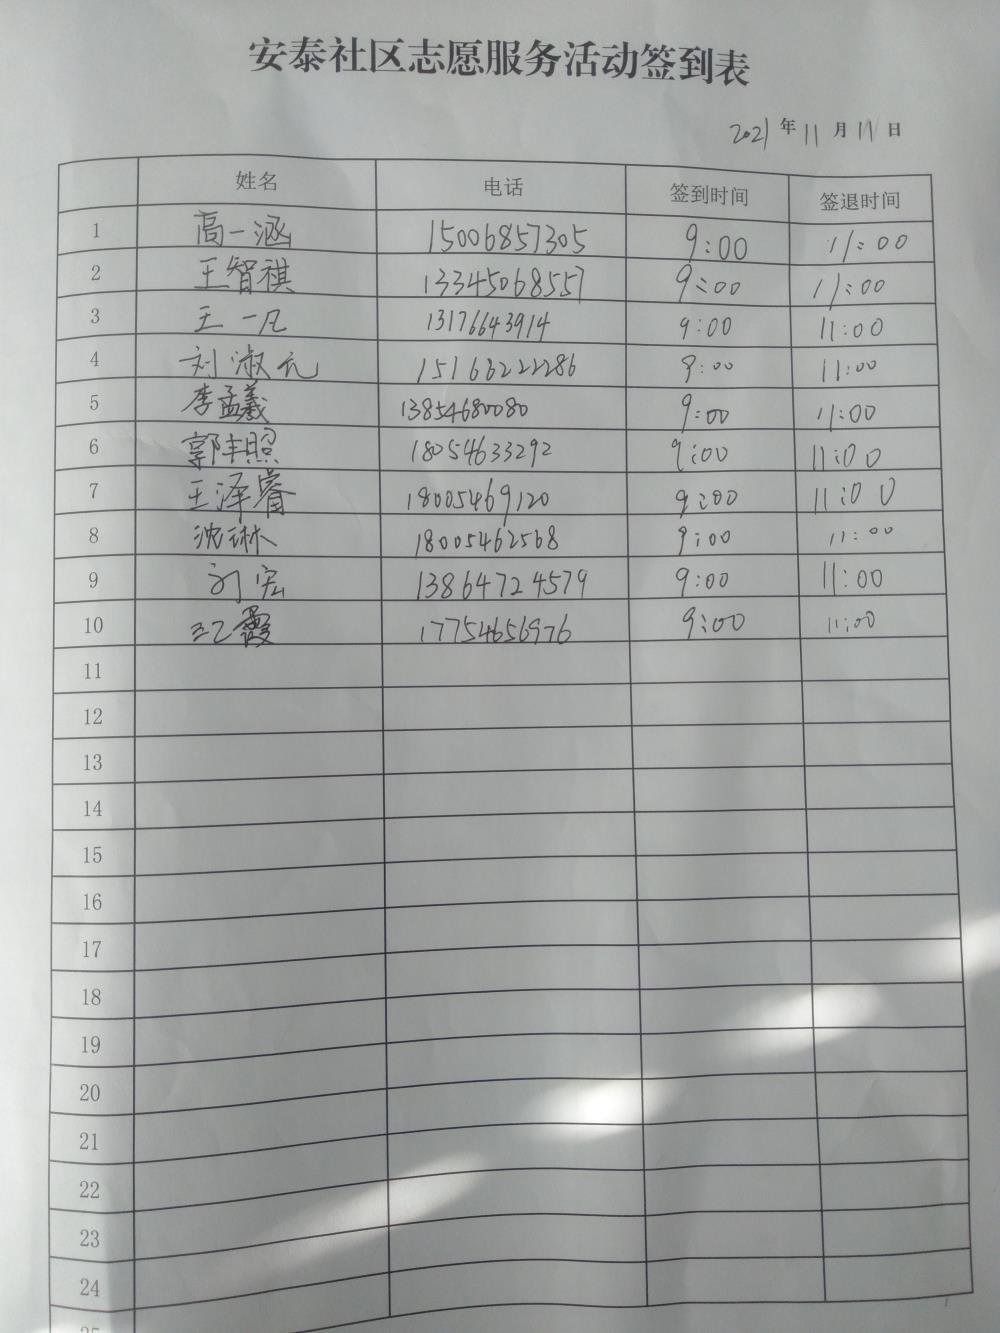 安泰社区志愿服务活动签到表
2021年11月11日
姓名 电话 签到时间 签退时间
1 高一涵 15006857305 9:00 11:00
2 王智祺 13345068557 9:00 11:00
3 王一凡 13176643914 9:00 11:00
4 刘淑元 15166222286 9:00 11:00
5 李孟羲 13854680080 9:00 11:00
6 郭丰照 18054633292 9:00 11:00
7 王泽睿 18005469120 9:00 11:00
8 沈琳 18005462568 9:00 11:00
9 刘宏 13864724579 9:00 11:00
10 霞 17754656976 9:00 11:00
11
12
13
14
15
16
17
18
19
20
21
22
23
24
25